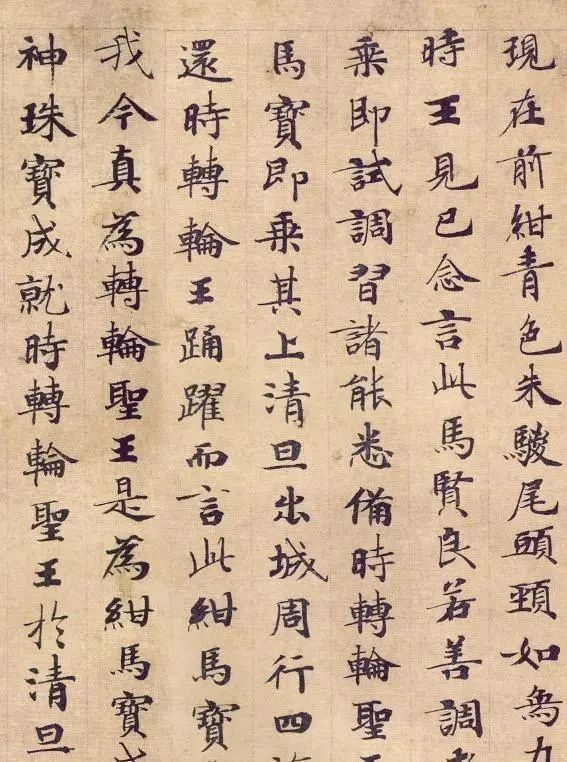 現在前紺青色朱駿尾頭頸如烏力
時王見已念言此馬賢良若善調
乘即試調習諸能悉備時轉輪聖
馬寶即乘其上清旦出城周行四
還時轉輪王踊躍而言此紺馬寶
我今真為轉輪聖王是為紺馬寶成
神珠寶成就時轉輪聖王於清旦